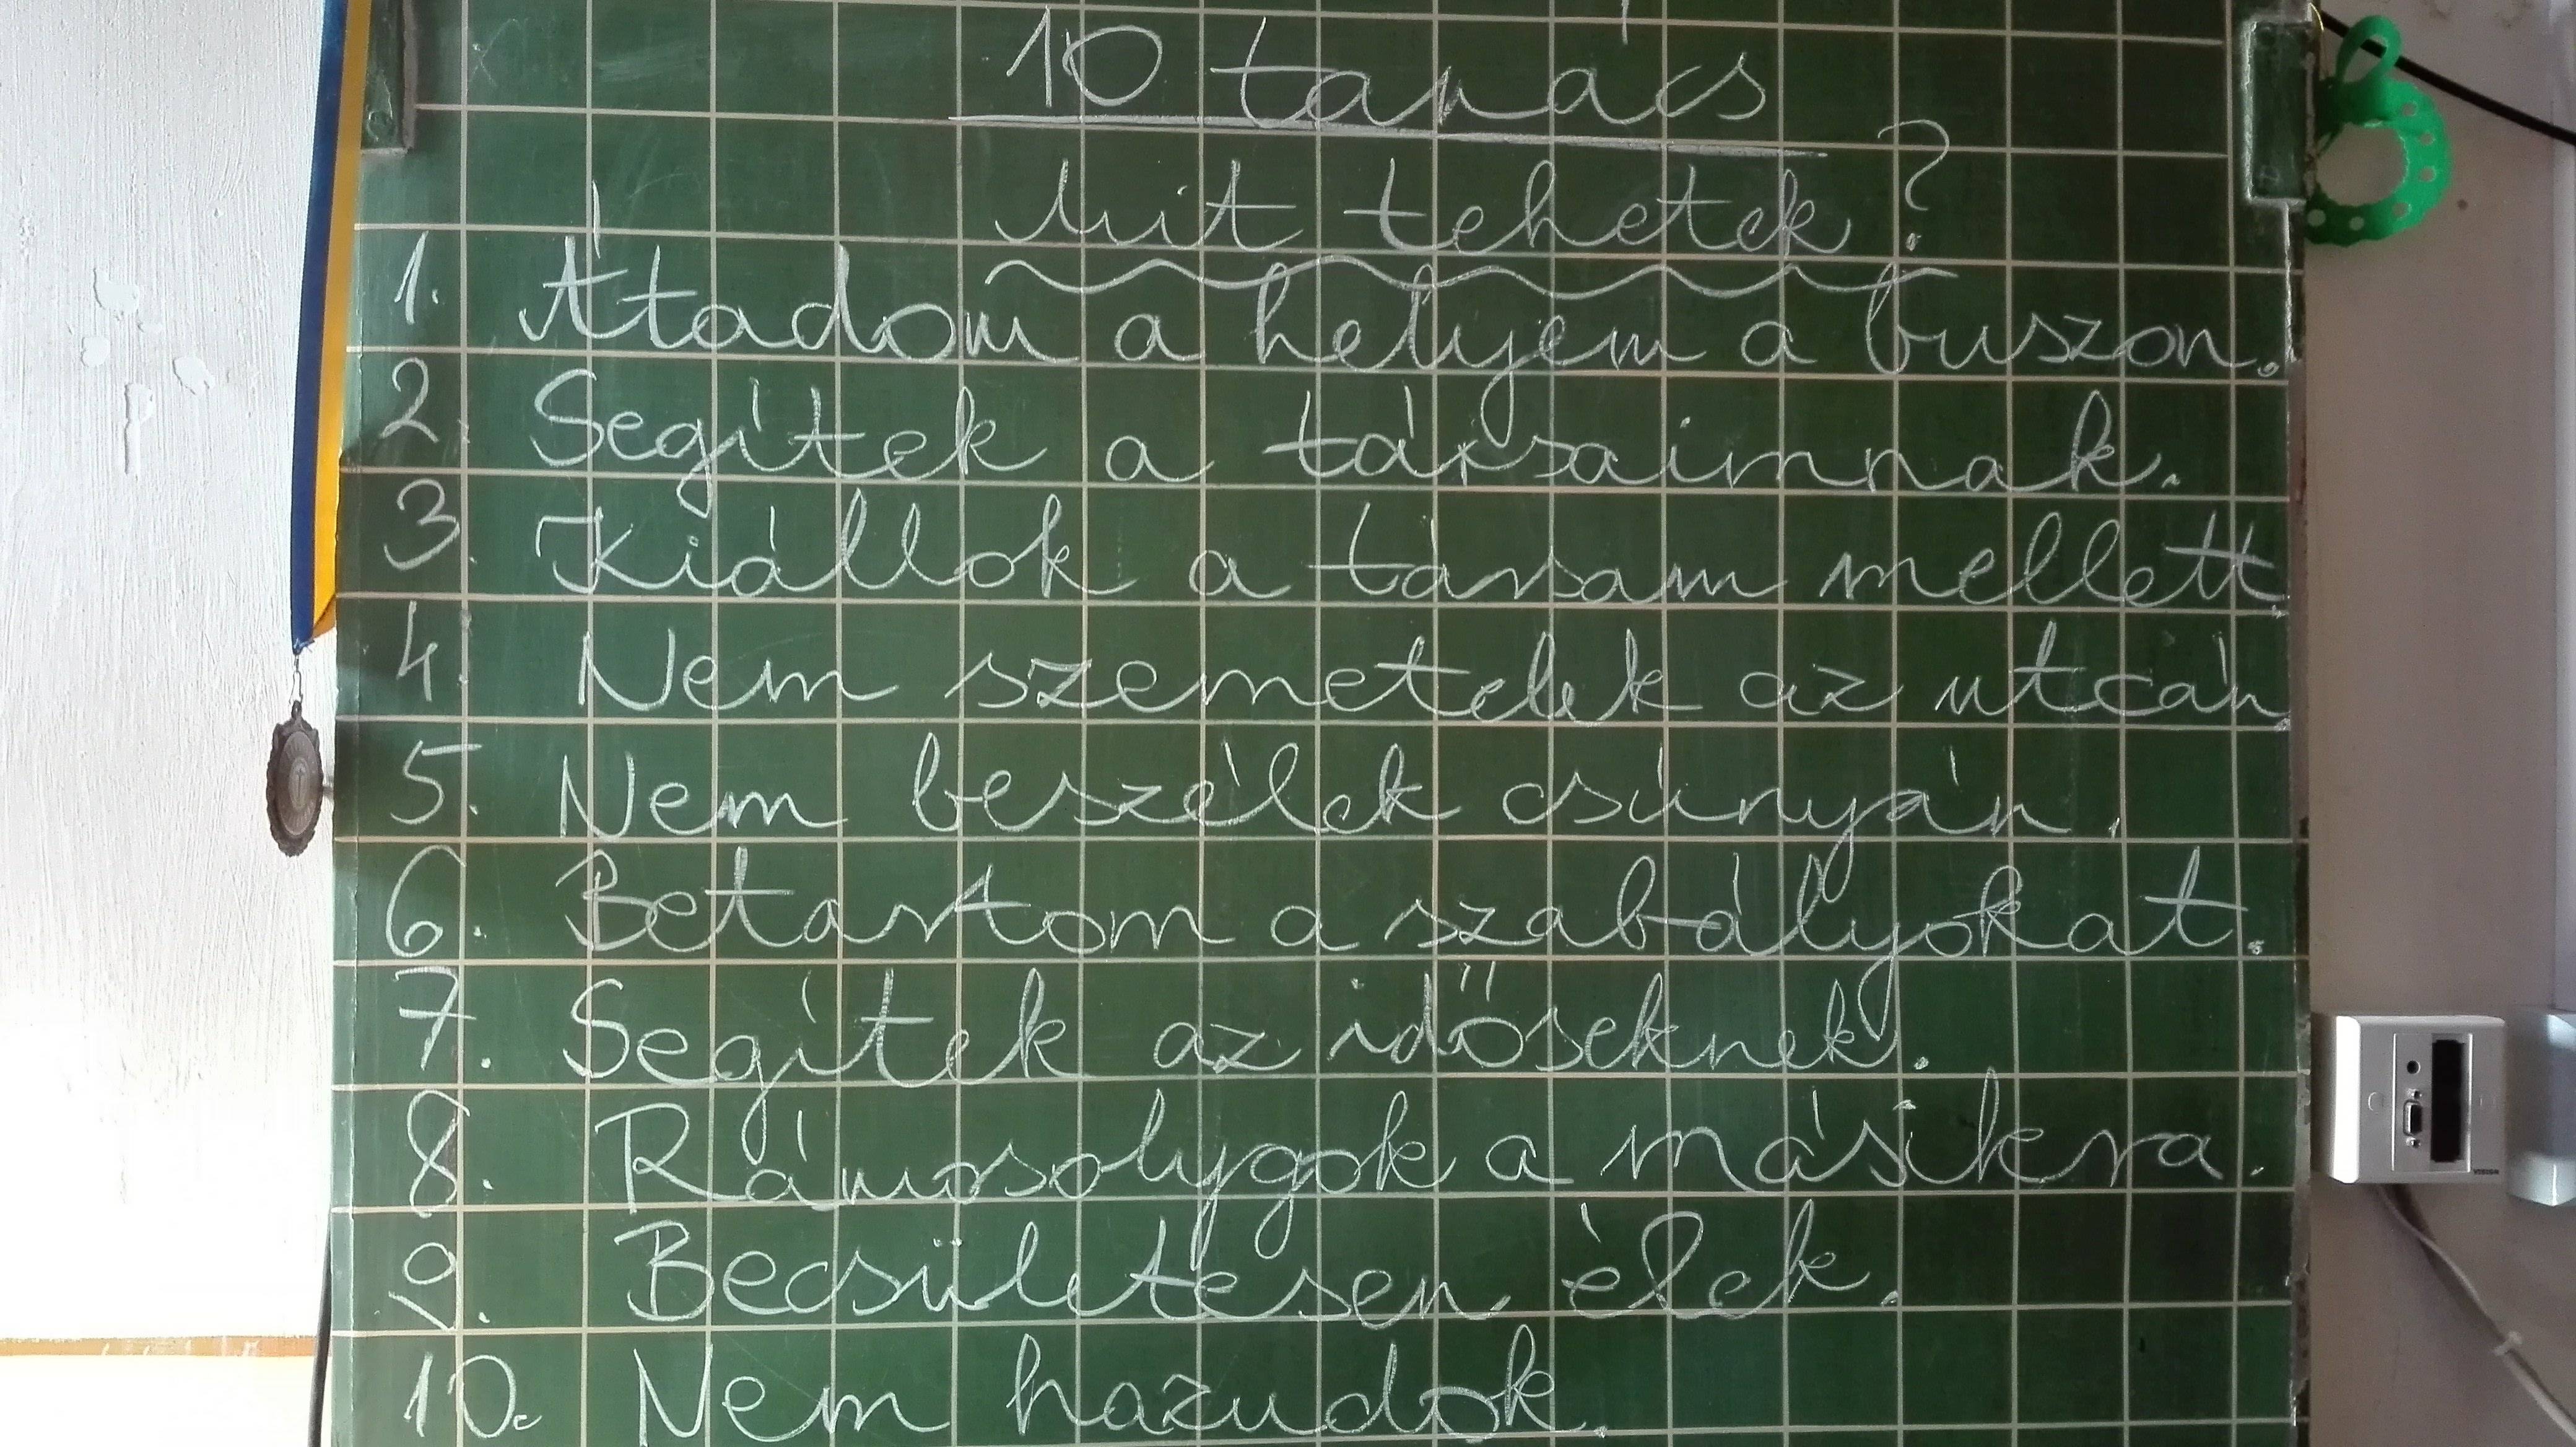 10 tanács
Mit tehetek?
1. Átadom a helyem a buszon.
2. Segítek a társaimnak.
3. Kiállok a társam mellett.
4. Nem szemetelek az utcán.
5. Nem beszélek csúnyán.
6. Betartom a szabályokat.
7. Segítek az időseknek.
8. Rámosolygok a másikra.
9. Becsületesen élek.
10. Nem hazudok.